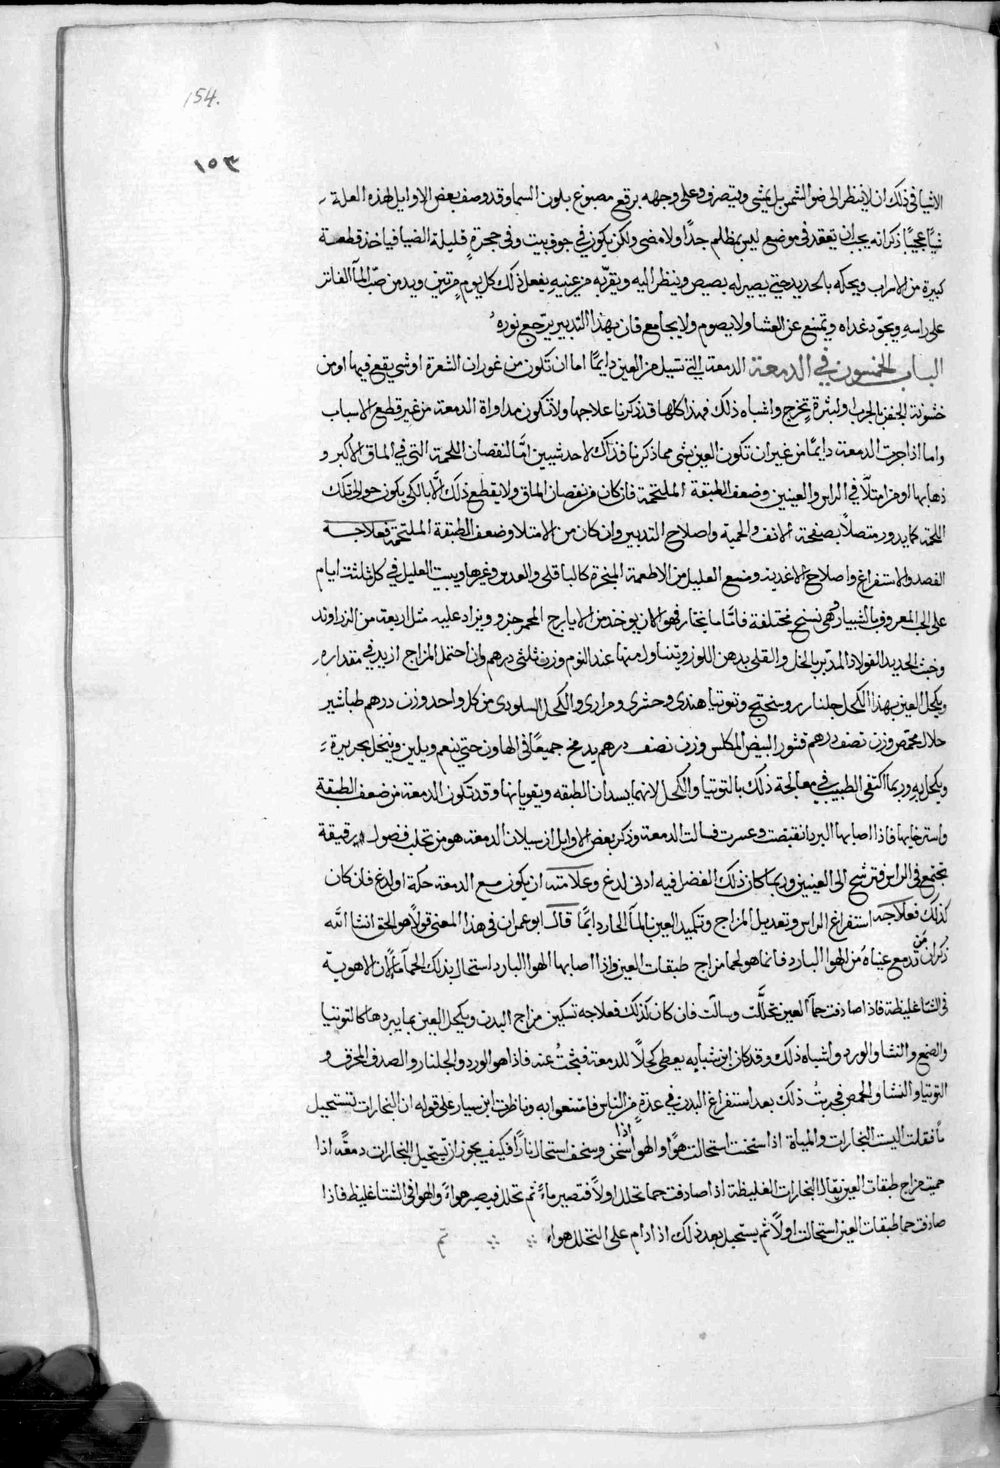 154.
١٥٣
الاشيا في ذلك ان لا ينظر الى ضو الشمس بل يمشي ويتصرف وعلى وجهه برقع مصبوغ بلون السما وقد وصف بعض الاوايل لهذه العلة
شيًا عجيبًا ذكر انه يجب ان يقعد في موضع ليس بمظلم جدًا ولا مضى ولكن يكون في جوف بيت وفى حجرةٍ قليلة الضيا فياخذ قطعة
كبيرة من الاسرب ويحكه بالحديد حتى يصير له بصيص وينظر اليه ويقرّبه من عينيه يفعل ذلك كل يوم مرتين ويدمن صبّ المآ الفاتر
على راسه ويجوّد غداه ويمتنع عن العشا ولا يصوم ولا يجامع فان بهذا التدبير يرجع نوره
الباب الخمسون في الدمعة الدمعة التي تسيل من العين دايمًا اما ان تكون من غوران الشعرة او شي يقع فيها او من
خشونة الجفن بالجرب او لبثرة تخرج واشباه ذلك فهذا كلها قد ذكرنا علاجها ولا تكون مداواة الدمعة من غير قطع الاسباب
واما اذا جرت الدمعة دايمًا من غير ان تكون العين بشي مما ذكرنا فذاك لاحد شيين امّا لنقصان اللحمة التي في الماق الاكبر و
ذهابها او من امتلآ في الراس والعينين وضعف الطبقة الملتحمة فان كان من نقصان الماق ولا يقطع ذلك الّا بالكي يكون حوالى تلك
اللحمة كما يدور متصلًا بصفحة الانف والحمية واصلاح التدبير وان كان من الامتلا وضعف الطبقة الملتحمة فعلاجه
الفصد والاستفراغ واصلاح الاغذية ومنع العليل من الاطعمة المبخرة كالباقلى والعدس وغيرها ويبيت العليل في كل ثلثة ايام
على الحب المعروف بالشبيار وهى نسخ مختلفة فامّا ما يختار فهو الان يوخذ من الايارج المخمر جزو ويزاد عليه مثل اربعة من الزراوند
وخبث الحديد الفولاذ المدبّر بالخل والقلى بدهن اللوز ويتناول منها عند النوم وزن ثلثى درهم وان احتمل المزاج ازيد في مقداره
ويكحل العين بهذا الكحل جلنار روسختج وتوتيا هندى وحشرى ومرارى والكحل السلودى من كل واحد وزن درهم طباشير
حلاله محمص وزن نصف درهم قشور البيض المكلس وزن نصف درهم يدمخ جميعًا في الهاون حتى ينعم ويلين وينخل بحريرة
ويكحل به وربما اكتفى الطبيب في معالجة ذلك بالتوتيا والكحل لانهما يسدان الطبقه ويقويانها وقد تكون الدمعة من ضعف الطبقة
واسترخايها فاذا اصابها البرد انقبضت وعسرت فسالت الدمعة وذكر بعض الاوايل ان سيلان الدمعة هو من تحلب فضول رقيقة
تجتمع في الراس فترشح الى العينين وربما كان ذلك الفضل فيه ادنى لدغ وعلامته ان يكون مع الدمعة حكة او لدغ فان كان
كذلك فعلاجه استفراغ الراس وتعديل المزاج وتكميد العين بالمآ الحار دايمًا قال ابو عمران في هذا المعنى قولًا هو الحق انشا الله
ذكر ان مَن تدمع عيناه من الهوا البارد فانما هو لحما مزاج طبقات العين واذا اصابها الهوا البارد استحال بذلك الحمآ مآ لان الاهوية
فى الشتا غليظة فاذا صادفت حمآ العين تحلّلت وسالت فان كان كذلك فعلاجه تسكين مزاج البدن ويكحل العين بما يبردها كالتوتيا
والصمغ والنشا والورد واشباه ذلك وقد كان ابن شبابه يعطى كحلًا للدمعة فبحثتُ عنه فاذا هو الورد والجلنار والصدف المحرق و
التوتيا والنشا والحمص فجربتُ ذلك بعد استفراغ البدن في عدةٍ من الناس فامتنعوا به وناظرت ابن سيار على قوله ان البخارات تستحيل
مآ فقلت اليست البخارات والمياة اذا سخنت استحالت هوًا والهوا اذا سخن وسخف استحال نارًا فكيف يجوز ان تستحيل البخارات دمعةً اذا
حميت مزاج طبقات العين فقال البخارات الغليظة اذا صادفت حما تحلل اولًا فتصير مآءً ثم تحلل فيصير هواءً والهوا فى الشتا غليظ فاذا
صادف حما طبقات العين استحالت اولًا ثم يستحيل بعد ذلك اذا دام على التحلل هواء تم